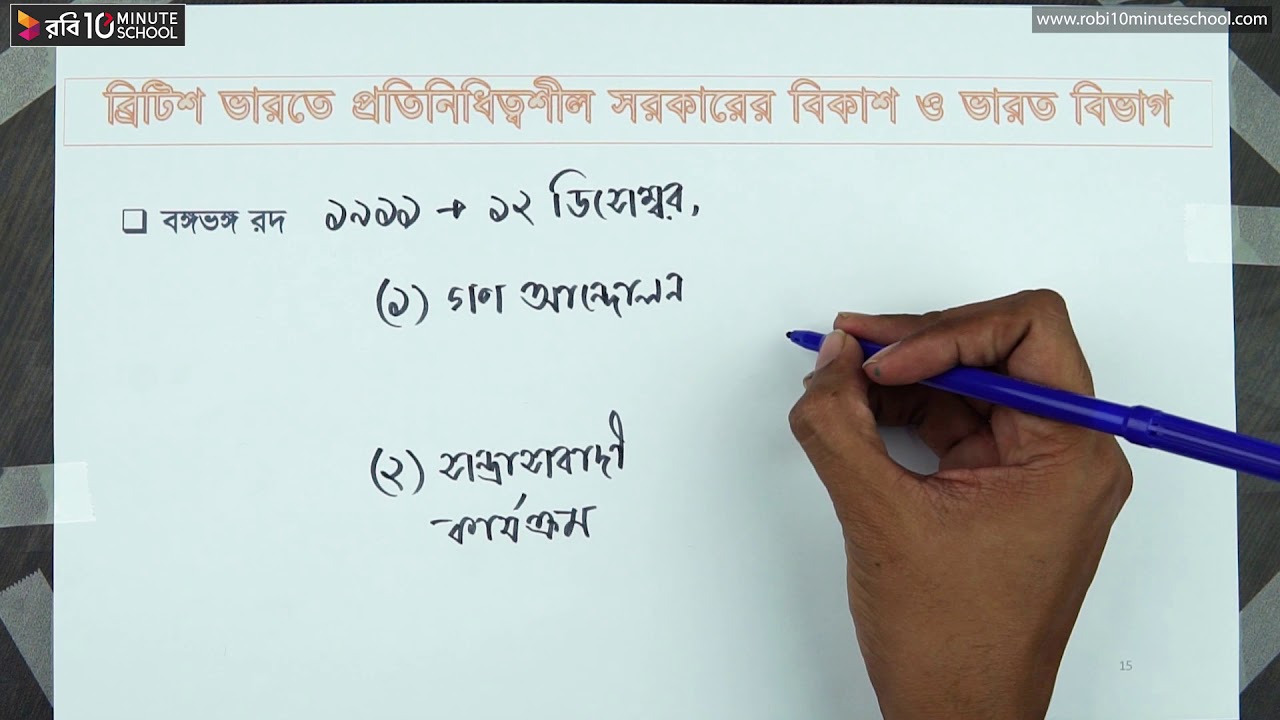 রবি 10 MINUTE SCHOOL
www.robi10minuteschool.com
ব্রিটিশ ভারতে প্রতিনিধিত্বশীল সরকারের বিকাশ ও ভারত বিভাগ
❑ বঙ্গভঙ্গ রদ ১৯১১ → ১২ ডিসেম্বর,
(১) গণ আন্দোলন
(২) সন্ত্রাসবাদী
কার্যক্রম
15